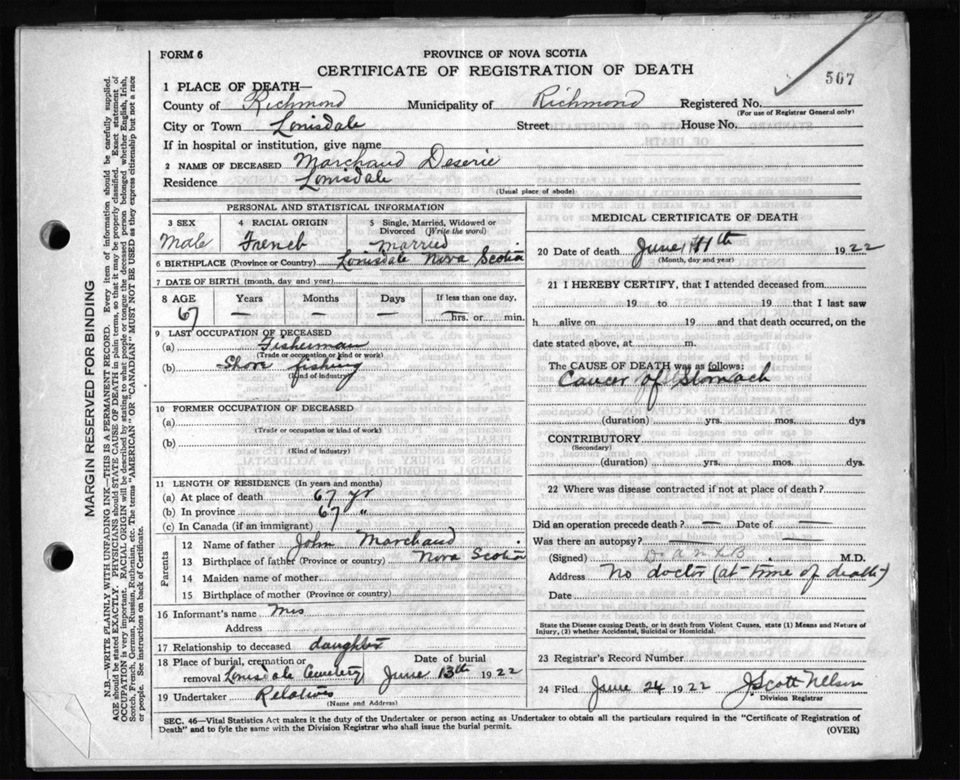 567
FORM 6
PROVINCE OF NOVA SCOTIA
CERTIFICATE OF REGISTRATION OF DEATH
1 PLACE OF DEATH—
County of Richmond Municipality of Richmond Registered No.
(For use of Registrar General only)
City or Town Louisdale Street House No.
If in hospital or institution, give name
2 NAME OF DECEASED Marchand Deserie
Residence Louisdale
(Usual place of abode)
PERSONAL AND STATISTICAL INFORMATION
3 SEX 4 RACIAL ORIGIN 5 Single, Married, Widowed or Divorced (Write the word)
Male French Married
6 BIRTHPLACE (Province or Country) Louisdale Nova Scotia
7 DATE OF BIRTH (month, day and year)
8 AGE Years Months Days If less than one day,
67 — — — — hrs. or min.
9 LAST OCCUPATION OF DECEASED
(a) Fisherman
(Trade or occupation or kind or work)
(b) Shore fishing
(Kind of industry)
10 FORMER OCCUPATION OF DECEASED
(a)
(Trade or occupation or kind of work)
(b)
(Kind of industry)
11 LENGTH OF RESIDENCE (In years and months)
(a) At place of death 67 yr
(b) In province 67 "
(c) In Canada (if an immigrant)
Parents
12 Name of father John Marchand
13 Birthplace of father (Province or country) Nova Scotia
14 Maiden name of mother
15 Birthplace of mother (Province or country)
16 Informant's name
Address
17 Relationship to deceased daughter
18 Place of burial, cremation or removal Louisdale Cemetery Date of burial June 13th 1922
19 Undertaker Relatives
(Name and Address)
MEDICAL CERTIFICATE OF DEATH
20 Date of death June 11th 1922
(Month, day and year)
21 I HEREBY CERTIFY, that I attended deceased from
19 to 19 that I last saw
h alive on 19 and that death occurred, on the
date stated above, at m.
The CAUSE OF DEATH was as follows:
Cancer of Stomach
(duration) yrs. mos. dys
CONTRIBUTORY
(Secondary)
(duration) yrs. mos. dys.
22 Where was disease contracted if not at place of death?
Did an operation precede death? — Date of —
Was there an autopsy? —
(Signed) M.D.
Address No doctor (at time of death)
Date
State the Disease causing Death, or in death from Violent Causes, state (1) Means and Nature of
Injury, (2) whether Accidental, Suicidal or Homicidal.
23 Registrar's Record Number
24 Filed June 24 1922 J. Scott Nelson
Division Registrar
SEC. 46—Vital Statistics Act makes it the duty of the Undertaker or person acting as Undertaker to obtain all the particulars required in the "Certificate of Registration of
Death" and to fyle the same with the Division Registrar who shall issue the burial permit.
(OVER)
MARGIN RESERVED FOR BINDING
N.B—WRITE PLAINLY WITH UNFADING INK—THIS IS A PERMANENT RECORD. Every item of information should be carefully supplied.
AGE should be stated EXACTLY. PHYSICIANS should STATE CAUSE OF DEATH in plain terms, so that it may be properly classified. Exact statement of
OCCUPATION is very important. RACIAL ORIGIN will be described by stating to what people or tongue the deceased person belonged whether English, Irish,
Scotch, French, German, Russian, Ruthenian, etc. The terms "AMERICAN" OR "CANADIAN" MUST NOT BE USED as they express citizenship but not a race
or people. See instructions on back of Certificate.